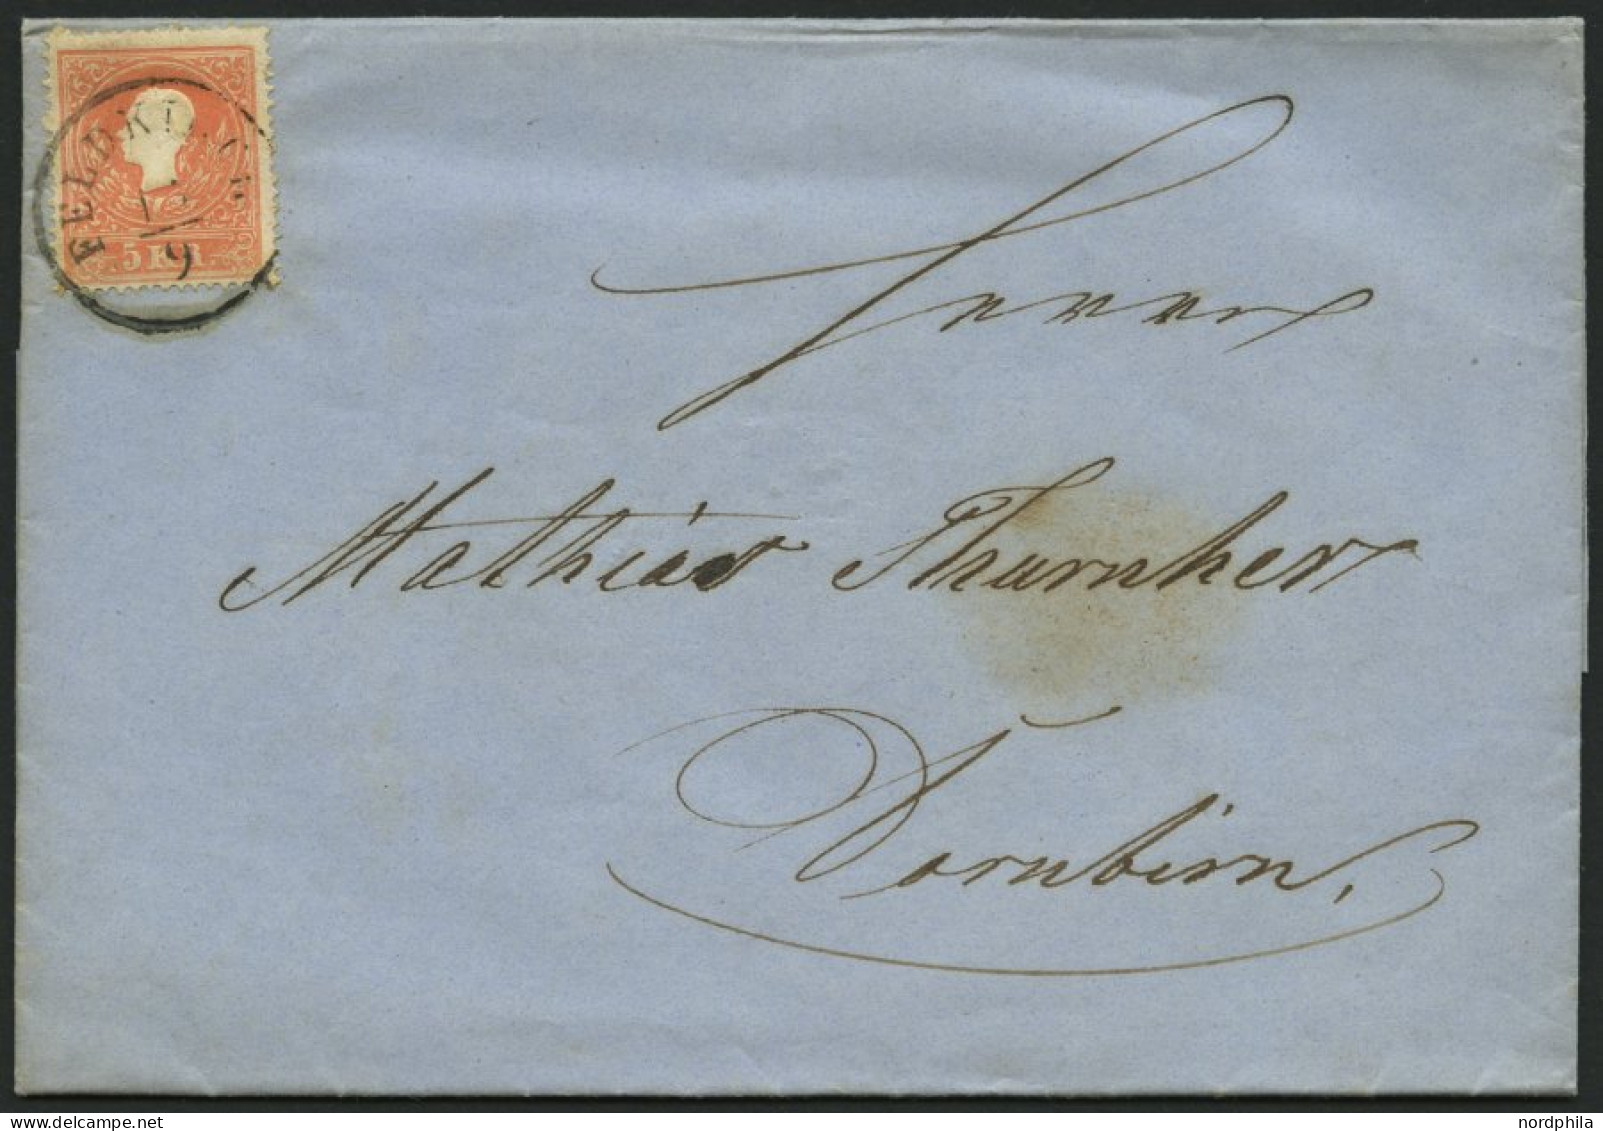 FELDKIRCH
9
5 KR
Herrn
Mathias Thurnher
Dornbirn,
nordphila